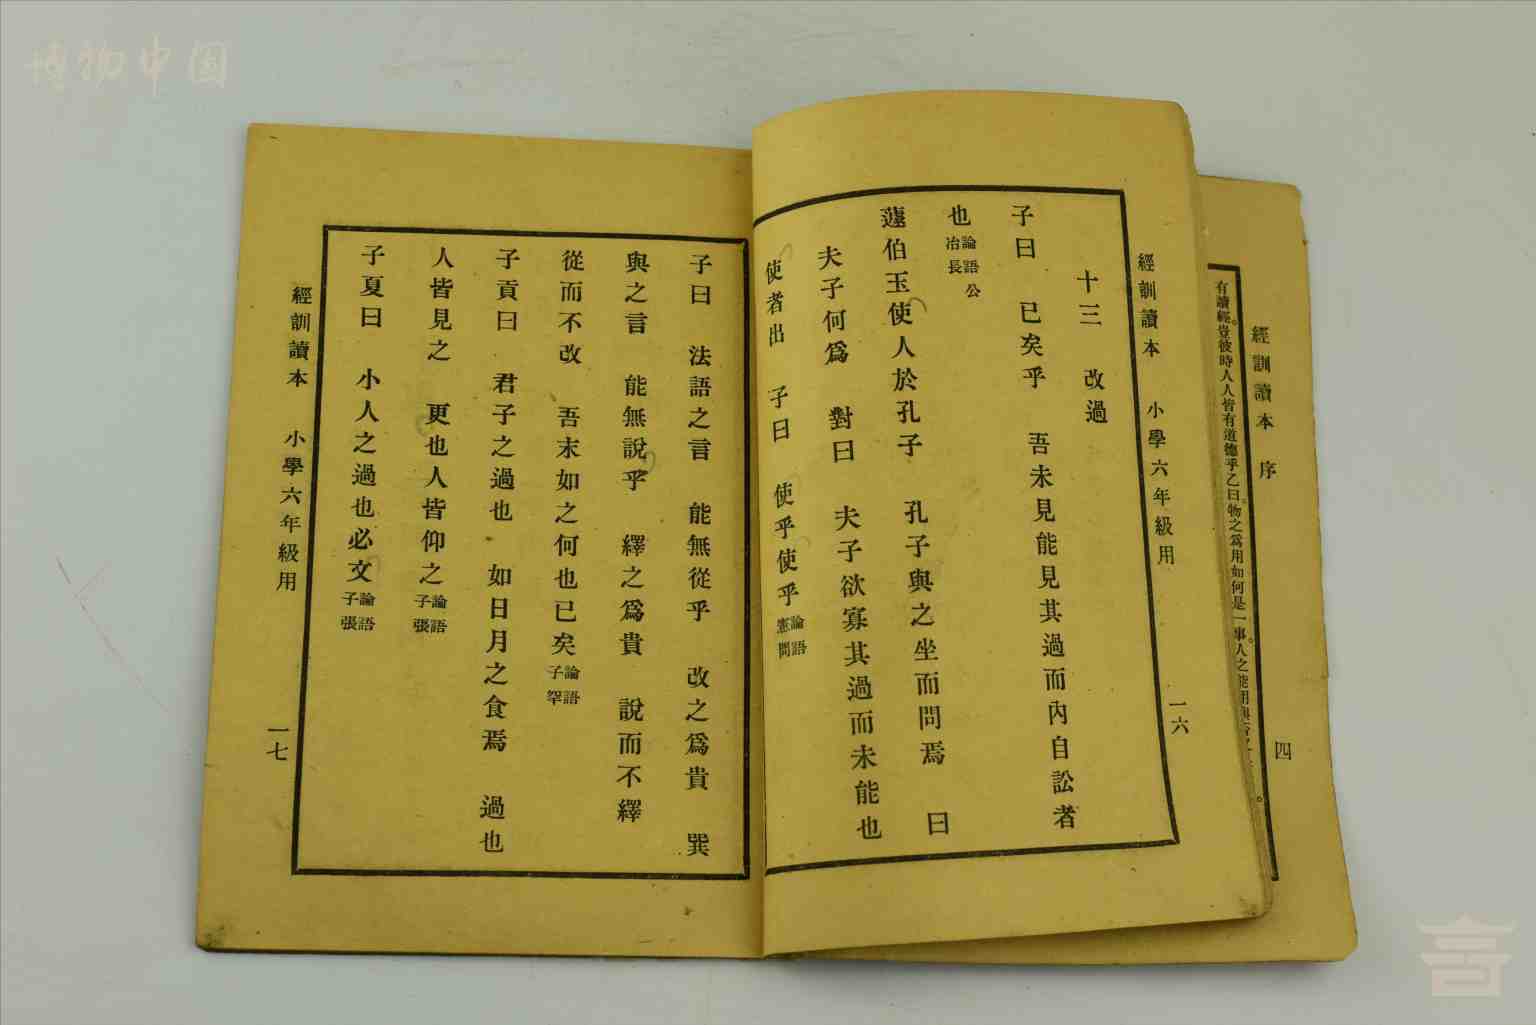 博物中国
經訓讀本 序 四
有讀經豈彼時人人皆有道德乎乙曰物之爲用如何是一事人之能用與否
經訓讀本 小學六年級用 一六
十三 改過
子曰 已矣乎 吾未見能見其過而內自訟者
也 論語公冶長
蘧伯玉使人於孔子 孔子與之坐而問焉 曰
夫子何爲 對曰 夫子欲寡其過而未能也
使者出 子曰 使乎使乎 論語憲問
子曰 法語之言 能無從乎 改之爲貴 巽
與之言 能無說乎 繹之爲貴 說而不繹
從而不改 吾末如之何也已矣 論語子罕
子貢曰 君子之過也 如日月之食焉 過也
人皆見之 更也人皆仰之 論語子張
子夏曰 小人之過也必文 論語子張
經訓讀本 小學六年級用 一七